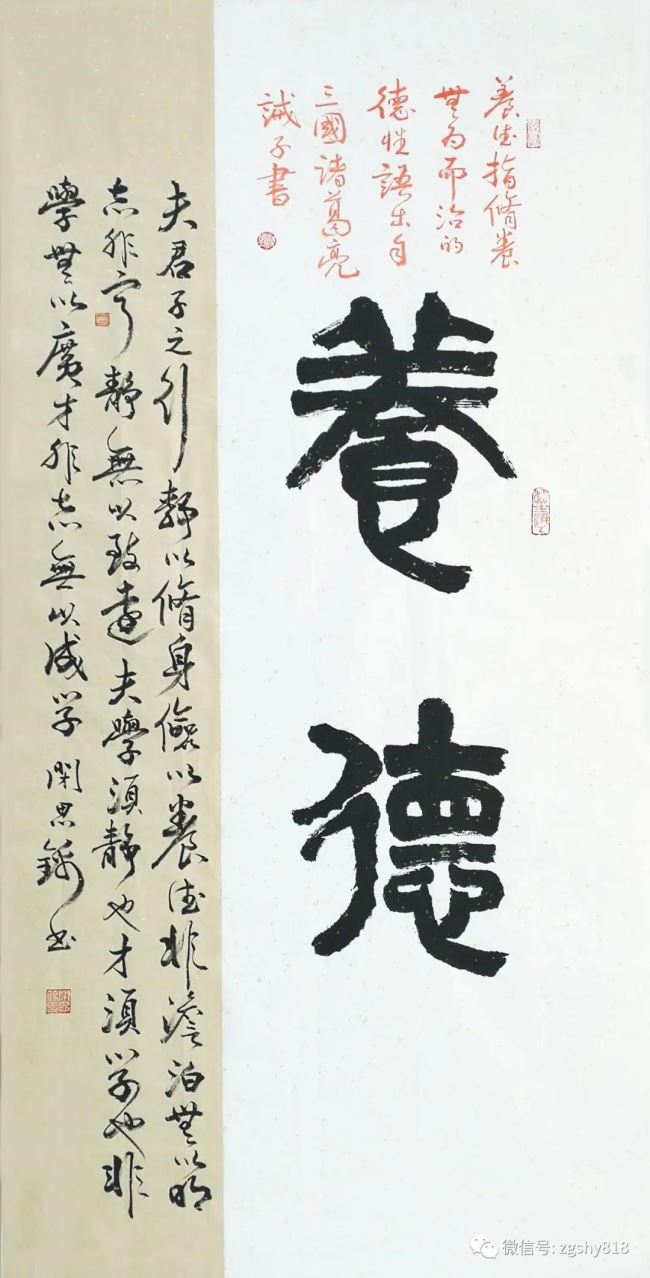 養德指脩養
無為而治的
德性語出自
三國諸葛亮
誡子書
養德
夫君子之行靜以脩身儉以養德非澹泊無以明
志非寧靜無以致遠夫學須靜也才須学也非
學無以廣才非志無以成学 思书
微信号: zgshy818